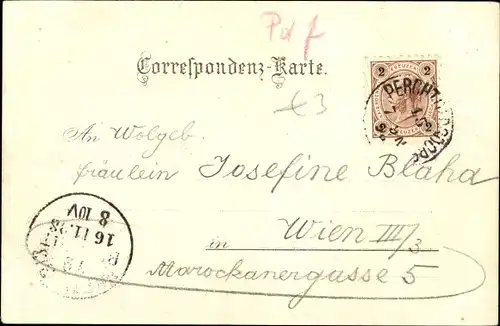 Pd f
Correspondenz-Karte.
2 2
PERCHTOLDSDORF
£3
An Wolgeb.
Fräulein Josefine Blaha
in Wien III/3
Marockanergasse 5
16 11.98
8 10V